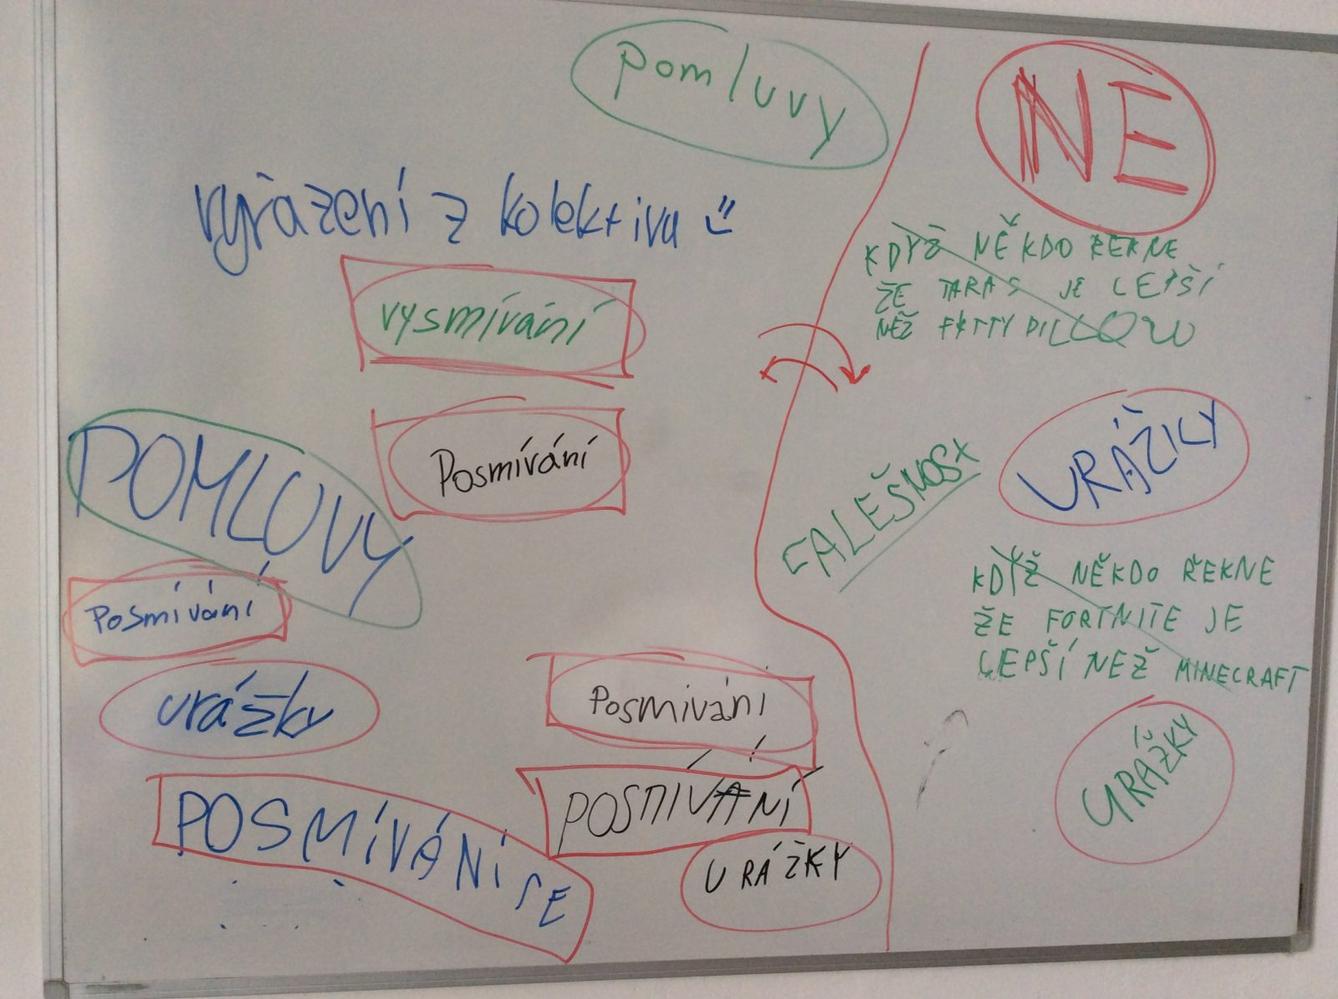 pomluvy
vyřazení z kolektivu
vysmívání
Posmívání
POMLUVY
Posmívání
urážky
Posmivání
POSMÍVÁNÍ
POSMÍVÁNÍ SE
URÁŽKY
NE
KDYŽ NĚKDO ŘEKNE
ŽE TARAS JE LEPŠÍ
NEŽ FATTY PILLOW
URÁŽKY
FALEŠNOST
KDYŽ NĚKDO ŘEKNE
ŽE FORTNITE JE
LEPŠÍ NEŽ MINECRAFT
URÁŽKY